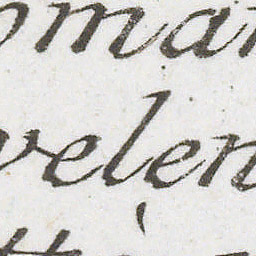 oman
velen